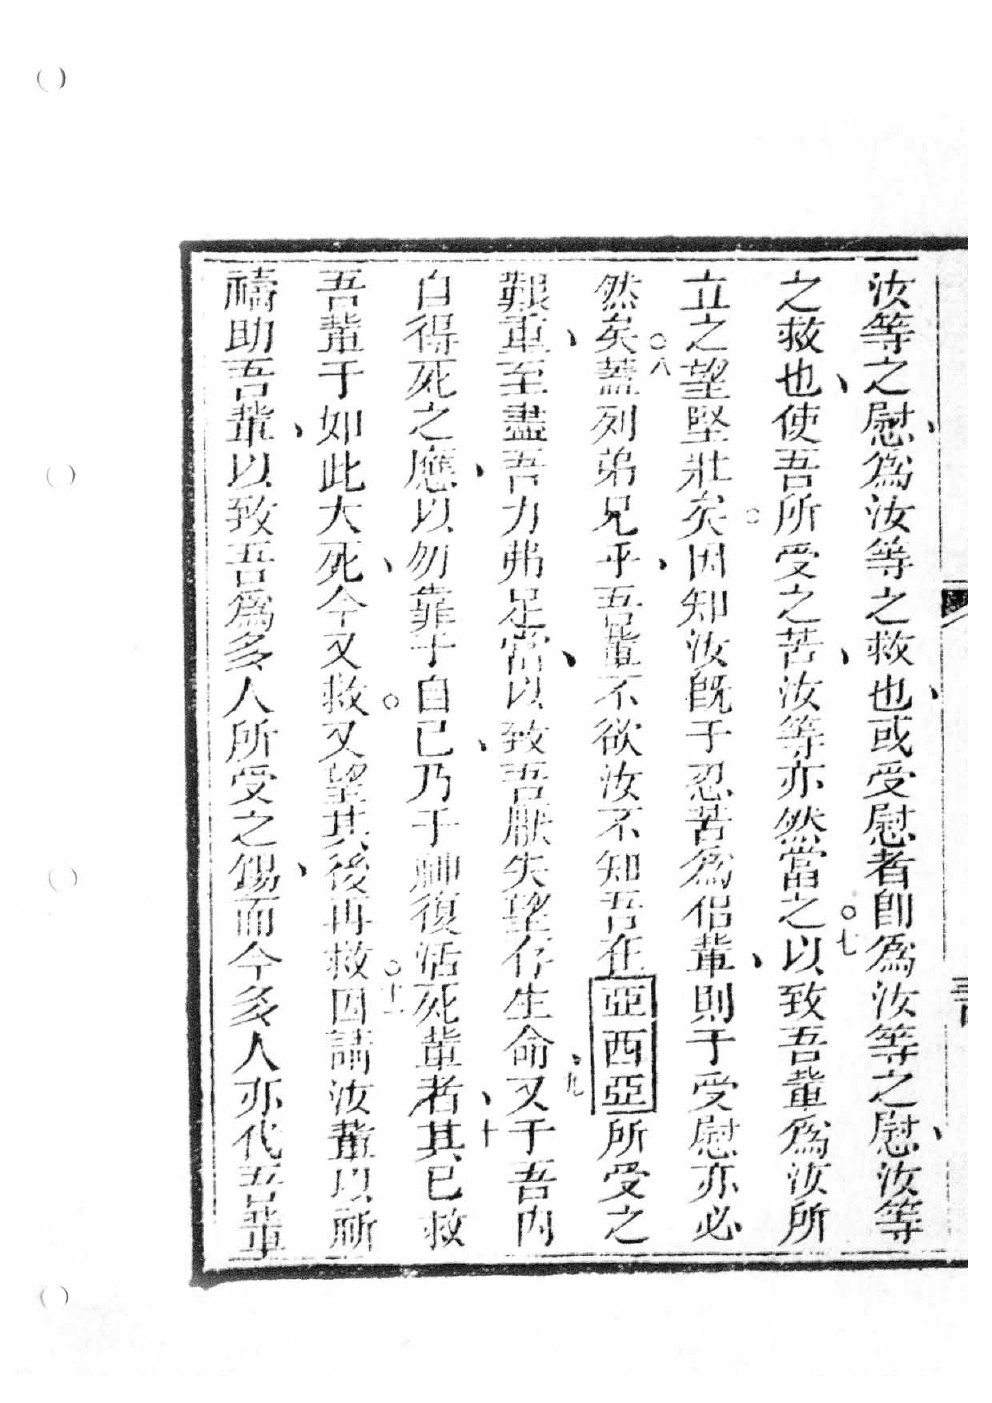 汝等之慰爲汝等之救也或受慰者卽爲汝等之慰汝等
之救也使吾所受之苦汝等亦然當之○七以致吾輩爲汝所
立之望堅壯矣因知汝既于忍苦爲侶輩則于受慰亦必
然矣○八蓋列弟兄乎吾輩不欲汝不知吾在亞西亞所受之
艱重至盡吾力弗足當以致吾厭失望存生命九又于吾內
自得死之應以勿靠于自己乃于卹復活死輩者十其已救
吾輩于如此大死今又救又望其後再救○十一因請汝輩以祈
禱助吾輩以致吾爲多人所受之錫而今多人亦代吾輩